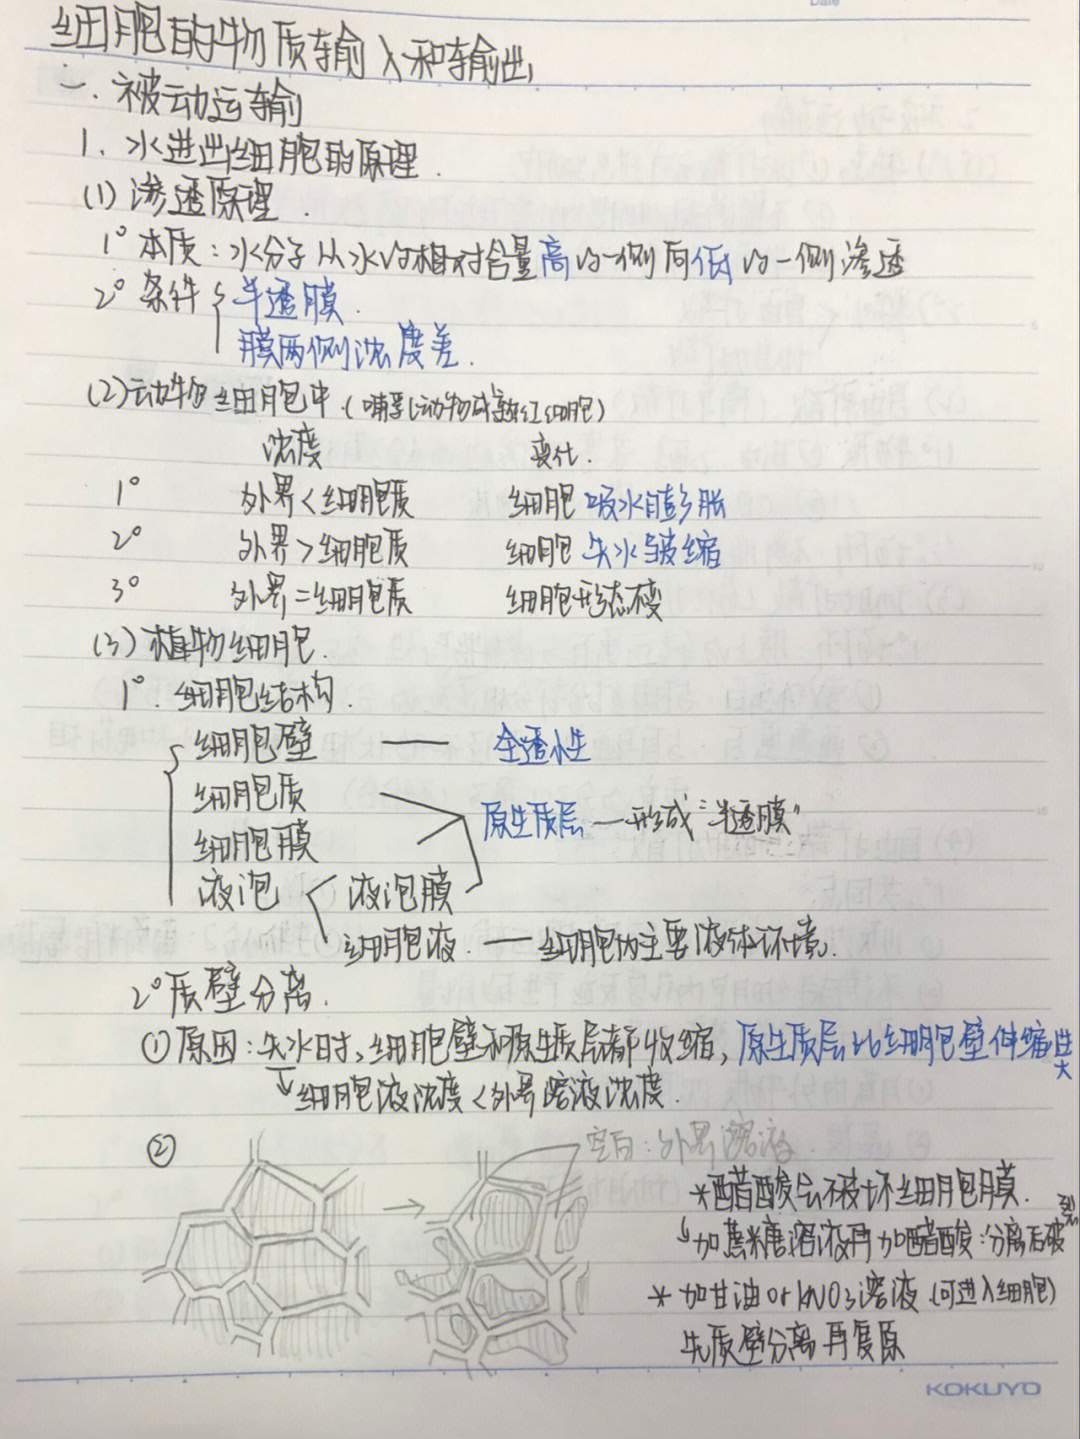 Date
细胞的物质输入和输出
一. 被动运输
1. 水进出细胞的原理.
(1) 渗透原理.
1° 本质: 水分子从水的相对含量高的一侧向低的一侧渗透
2° 条件 { 半透膜.
膜两侧浓度差.
(2) 动物细胞中 (哺乳动物成熟红细胞)
浓度 变化.
1° 外界<细胞质 细胞吸水膨胀
2° 外界>细胞质 细胞失水皱缩
3° 外界=细胞质 细胞形态不变
(3) 植物细胞.
1°. 细胞结构.
细胞壁 —— 全透性
细胞质
原生质层—形成"半透膜"
细胞膜
液泡 < 液泡膜
细胞液. — 细胞内主要液体环境.
2° 质壁分离.
① 原因: 失水时, 细胞壁和原生质层都收缩, 原生质层比细胞壁伸缩性大
↳细胞液浓度<外界溶液浓度.
② 空白: 外界溶液.
*醋酸会破坏细胞膜.
↳加蔗糖溶液再加醋酸: 分离后破裂
* 加甘油or KNO3溶液 (可进入细胞)
先质壁分离再复原
KOKUYO